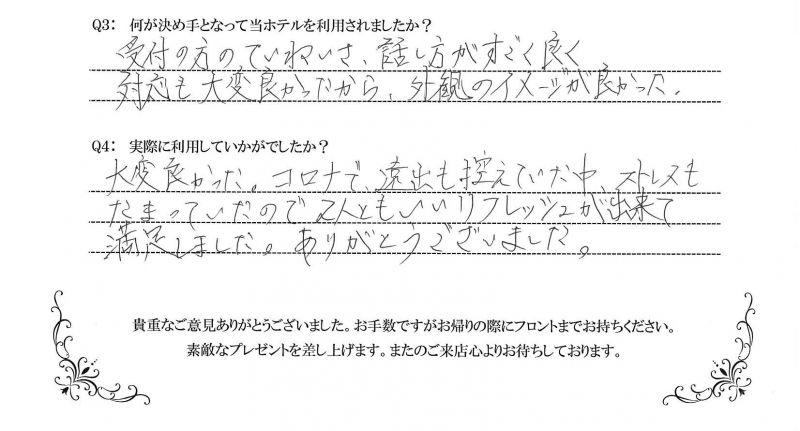 Q3: 何が決め手となって当ホテルを利用されましたか？
受付の方のていねいさ、話し方がすごく良く
対応も大変良かったから、外観のイメージが良かった。
Q4: 実際に利用していかがでしたか？
大変良かった。コロナで、遠出も控えていた中、ストレスも
たまっていたので2人ともいいリフレッシュが出来て
満足しました。ありがとうございました。
貴重なご意見ありがとうございました。お手数ですがお帰りの際にフロントまでお持ちください。
素敵なプレゼントを差し上げます。またのご来店心よりお待ちしております。